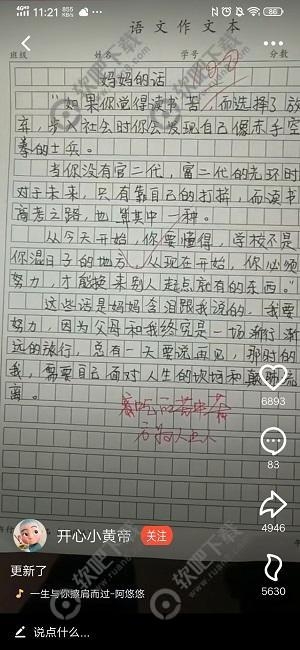 11:21
855 KB/s
86
语文作文本
班级 姓名 学号 分数
妈妈的话
"如果你觉得读书苦,而选择了放
弃,步入社会时你会发现自己像赤手空
拳的士兵。
当你没有官二代,富二代的光环时
对于未来,只有靠自己的打拼,而读书
高考之路,也算其中一种。
从今天开始,你要懂得,学校不是
你混日子的地方,从现在开始,你必须
努力,才能换来别人起点就有的东西。"
这些话是妈妈含泪跟我说的,我要
努力,因为父母和我终究是一场渐行渐
远的旅行,总有一天要说再见,那时的
我,需要自己面对人生的坎坷和颠沛流
离。
6893
83
4946
5630
开心小黄帝
关注
更新了
一生与你擦肩而过-阿悠悠
说点什么...
软吧下载